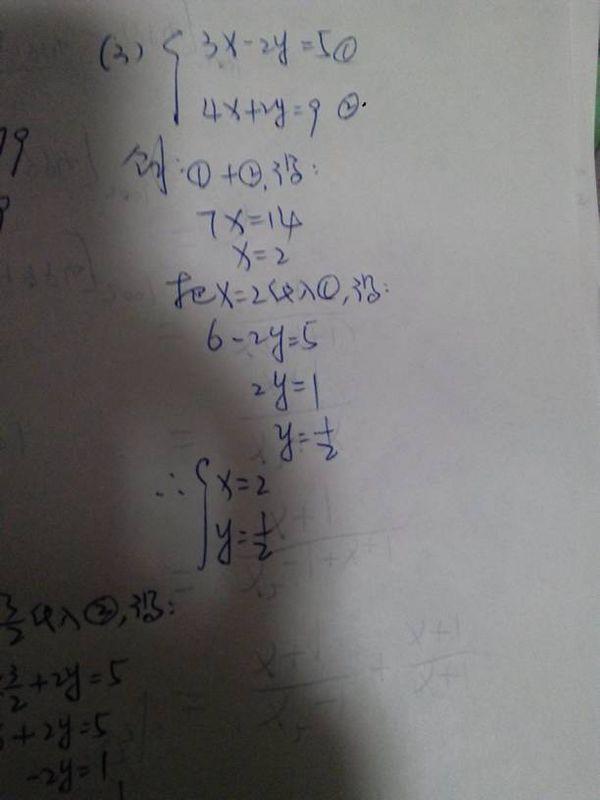 (3) { 3x-2y=5①
4x+2y=9 ②.
解:①+②,得:
7x=14
x=2
把x=2代入①,得:
6-2y=5
2y=1
y=1/2
∴ { x=2
y=1/2
3/2代入②,得:
3/2+2y=5
+2y=5
-2y=1